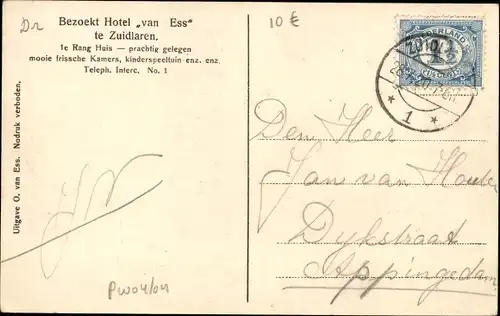 Dr
Bezoekt Hotel „van Ess"
te Zuidlaren,
1e Rang Huis — prachtig gelegen
mooie frissche Kamers, kinderspeeltuin enz. enz.
Teleph. Interc. No. 1
10 €
NEDERLAND
1½
1½ CENT
* 1 *
Uitgave O. van Ess. Nadruk verboden.
Den Heer
Jan van Houten
Dykstraat
Appingedam
PW04/04